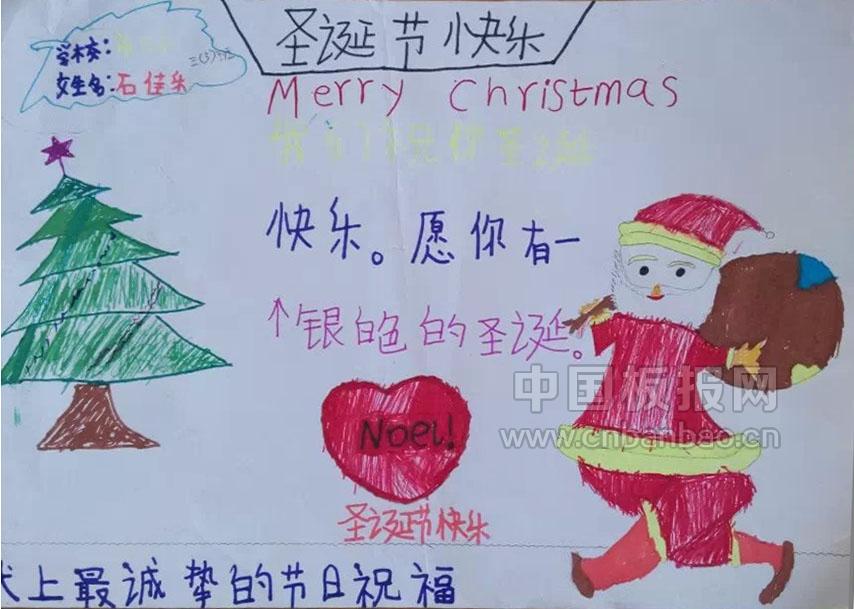 学校:
三(5)
姓名:石佳乐
圣诞节快乐
Merry Christmas
我们祝你圣诞
快乐。愿你有一
个银白色的圣诞。
Noel!
圣诞节快乐
上最诚挚的节日祝福
中国板报网
www.cnbanbao.cn